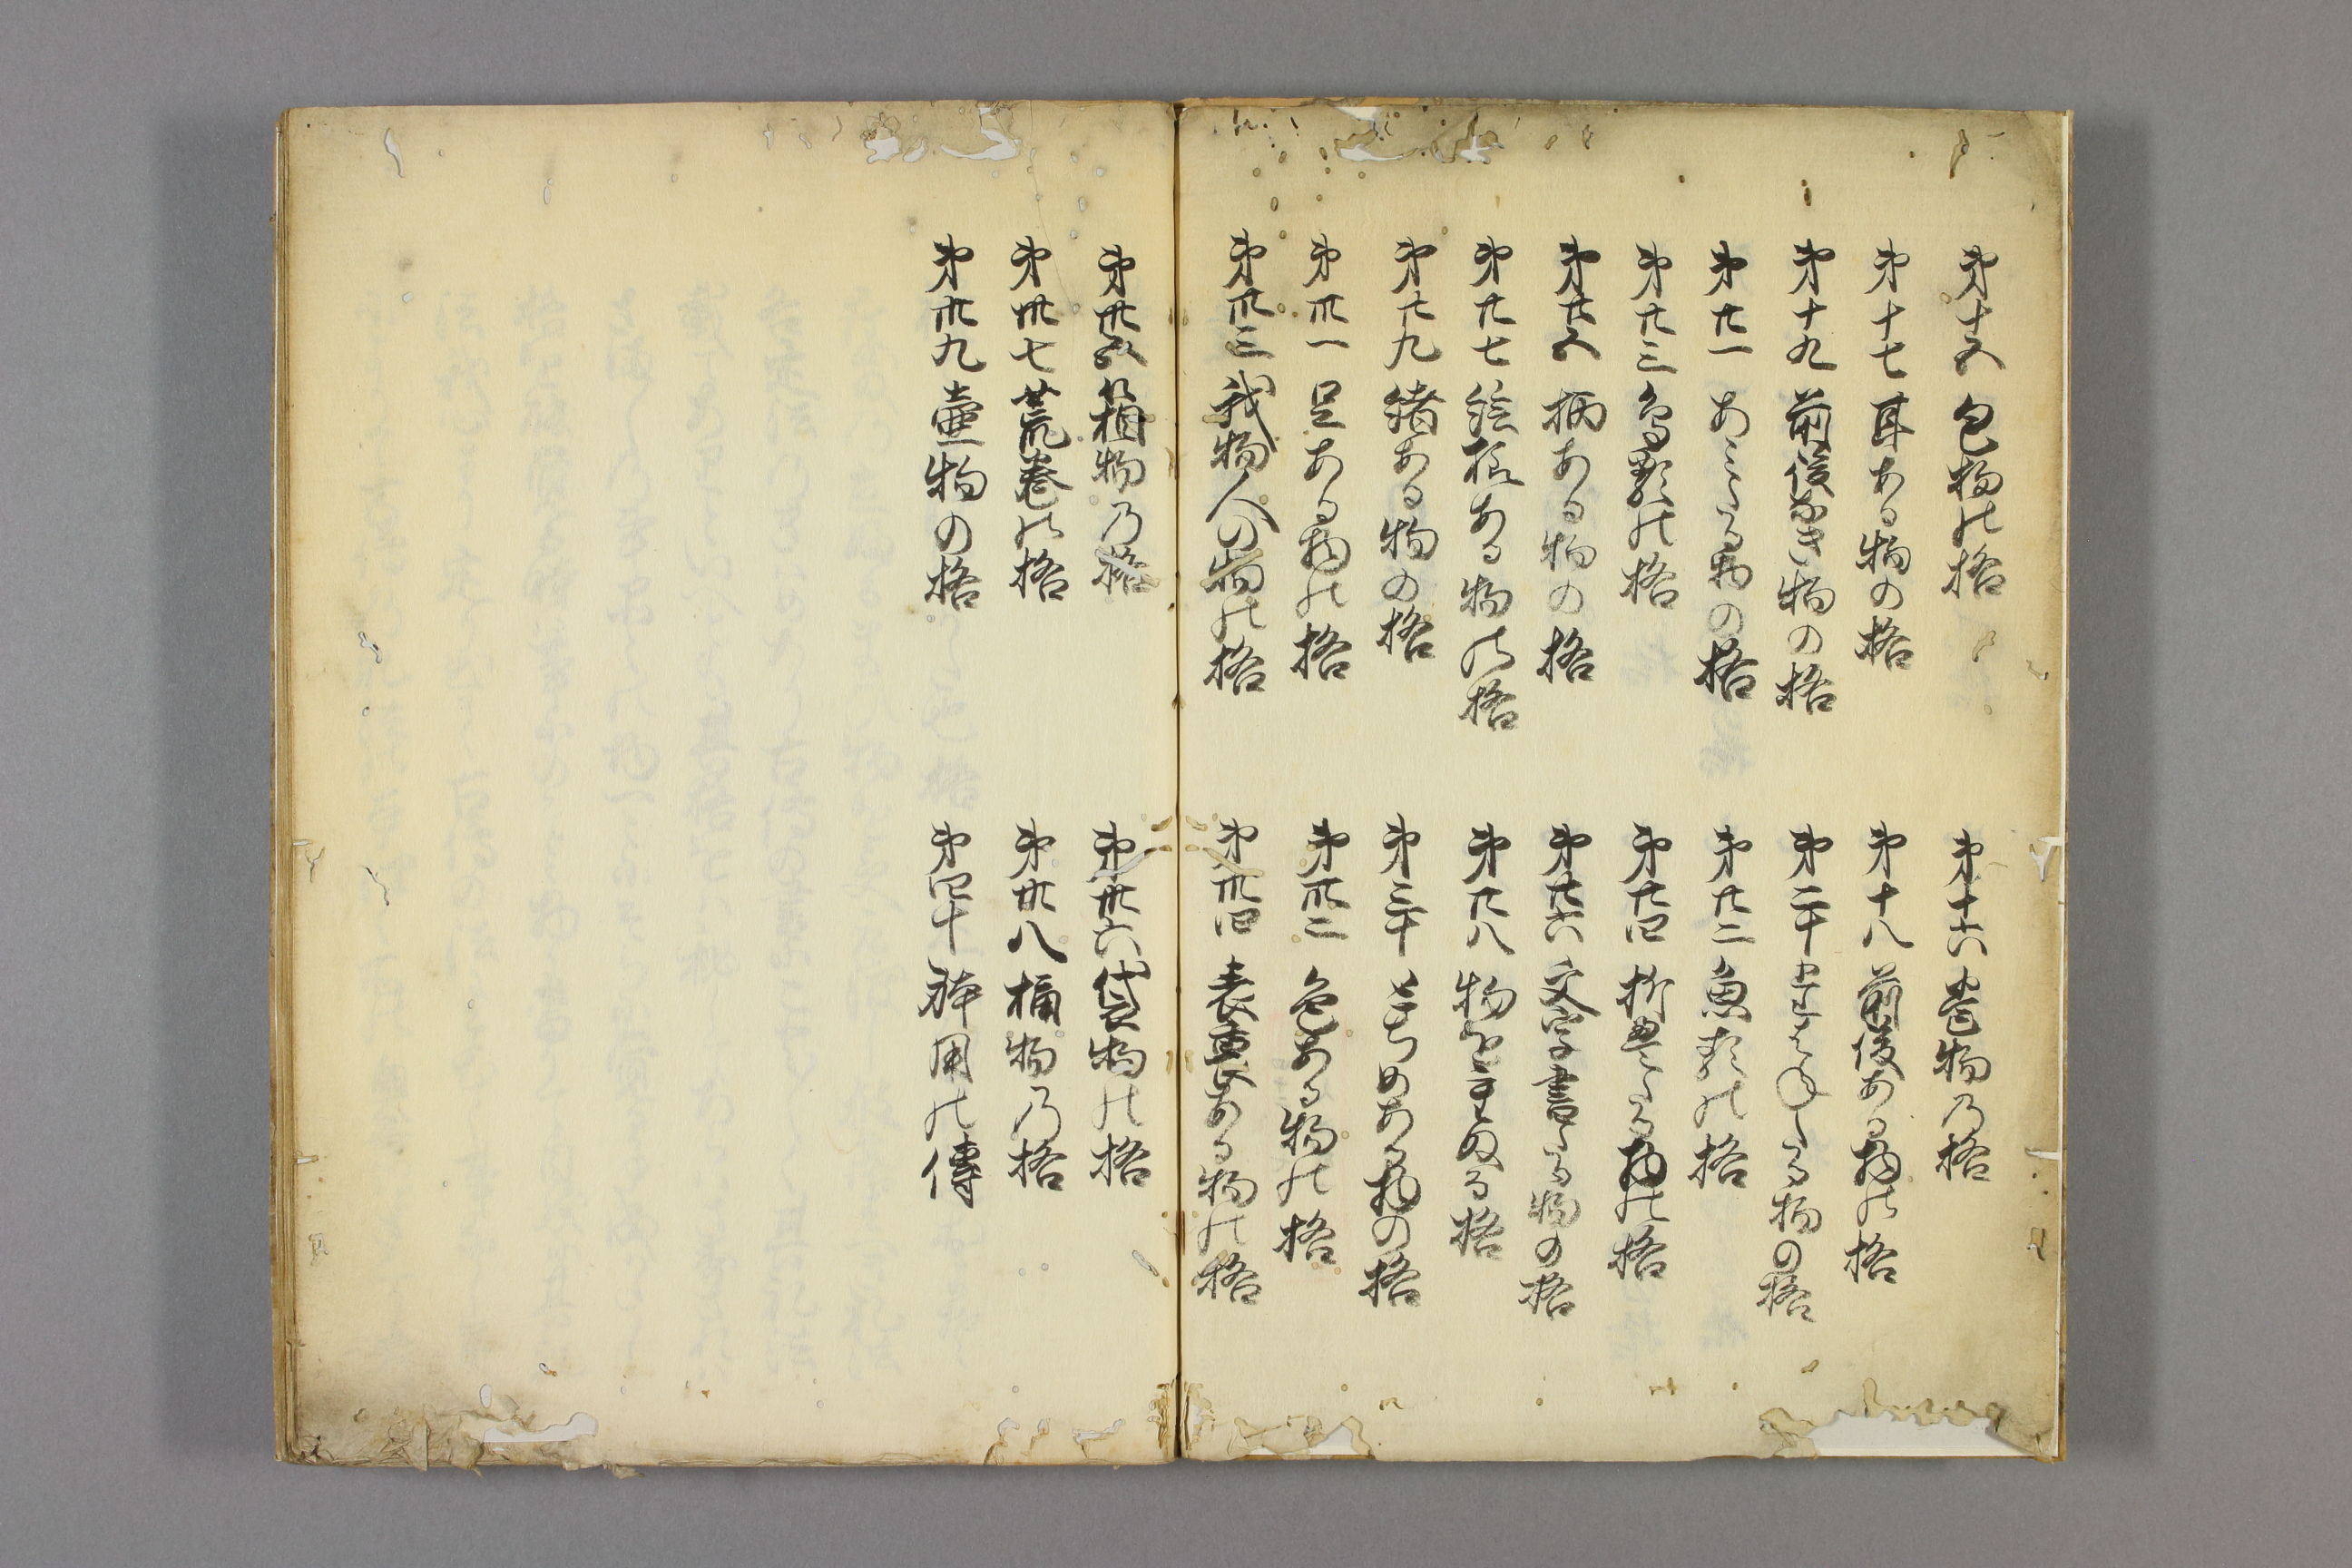 第十五 包物の格
第十六 巻物乃格
第十七 耳ある物の格
第十八 前後ある物の格
第十九 前後なき物の格
第二十
第廿一 あミたる物の格
第廿二 魚類の格
第廿三 鳥類の格
第廿四 折畳たる物の格
第廿五 柄ある物の格
第廿六 文字書たる物の格
第廿七 絵様ある物の格
第廿八 物を重ぬる格
第廿九 緒ある物の格
第三十 ある物の格
第卅一 足ある物の格
第卅二 色ある物の格
第卅三 我物人の物の格
第卅四 表裏ある物の格
第卅五 箱物乃格
第卅六 袋物の格
第卅七 荒巻の格
第卅八 桶物乃格
第卅九 壷物の格
第四十 用の傳